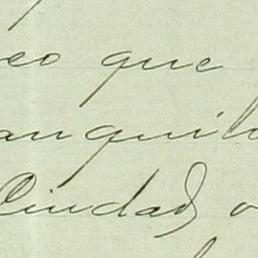 eo que
anquil
Ciudad, o